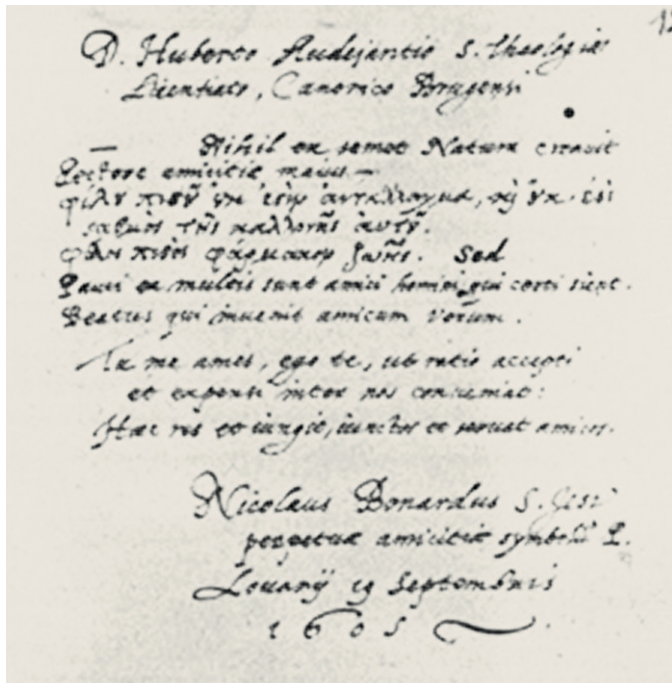 D. Huberto Audejantio S. Theologiæ
Licentiato, Canonico Brugensi
— Nihil ex semet Natura creavit
Pectore amicitiæ maius —
φίλου πιστοῦ οὐκ ἔστιν ἀντάλλαγμα, καὶ οὐκ ἔστι
σταθμὸς τῆς καλλονῆς αὐτοῦ.
φίλος πιστὸς φάρμακον ζωῆς. Sed
Pauci ex multis sunt amici homini qui certi sient.
Beatus qui invenit amicum verum.
Tu me ames, ego te, ut ratio accepti
et expensi inter nos conveniat:
Hæc res et iungit, iunctos et servat amicos.
Nicolaus Bonardus S. Jesu
perpetuæ amicitiæ P.
Lovanij 19 Septembris
1605